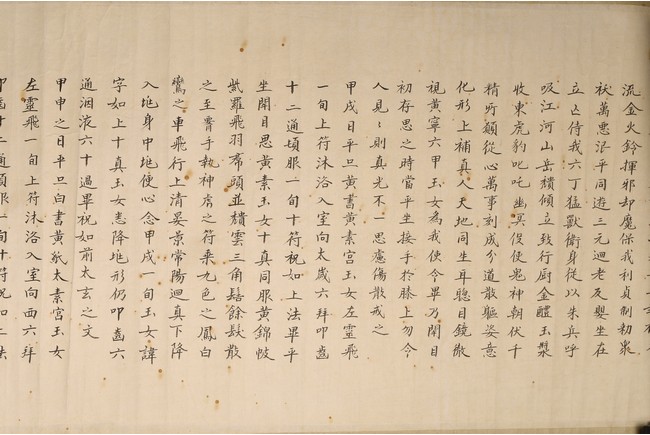 流金火鈴揮邪却魔保我利貞制勑眾
祅萬惡泯平同遊三元迴老反嬰坐在
立亡侍我六丁猛獸衛身從以朱兵呼
吸江河山岳穨傾立致行厨金醴玉漿
收束虎豹叱吒幽冥役使鬼神朝伏千
精所願從心萬事剋成分道散軀恣意
化形上補真人天地同生耳聰目鏡徹
視黃寧六甲玉女為我使令畢乃開目
初存思之時當平坐接手於膝上勿令
人見〻則真光不 思慮傷散戒之
甲戌日平旦黃書黃素宮玉女左靈飛
一旬上符沐浴入室向太歲六拜叩齒
十二通頓服一旬十符祝如上法畢平
坐閉目思黃素玉女十真同服黃錦帔
紫羅飛羽帬頭並穨雲三角髻餘髮散
之至腰手執神虎之符乘九色之鳳白
鸞之車飛行上清晏景常陽迴真下降
入虵身中虵便心念甲戌一旬玉女諱
字如上十真玉女悉降虵形仍叩齒六
通洇液六十過畢祝如前太玄之文
甲申之日平旦白書黃紙太素宮玉女
左靈飛一旬上符沐浴入室向西六拜
叩齒十二通頓服一旬十符祝如上法